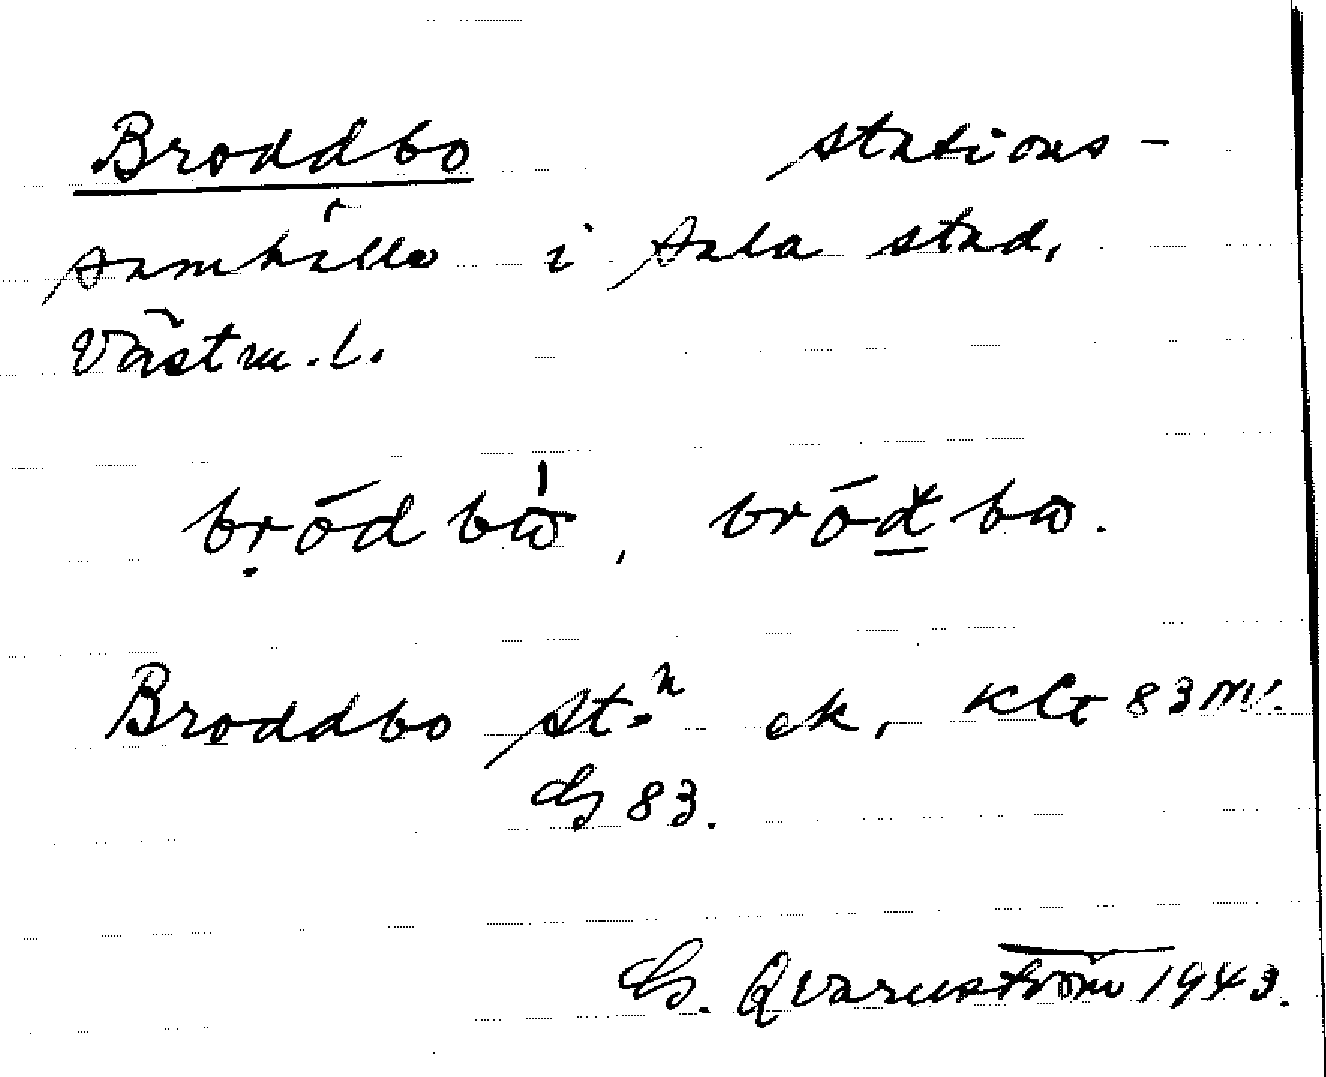 Broddbo stations-
samhälle i Sala stad,
Västm. l.
bródbὼ, bródbω.
Broddbo st.n ek, KlG 83 NV.
GS 83.
G. Qvarnström 1943.